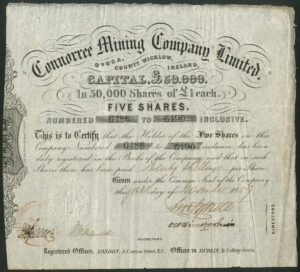 Connorree Mining Company Limited.
OVOCA,
COUNTY WICKLOW,
IRELAND,
CAPITAL, £50,000.
In 50,000 Shares of £1 each.
FIVE SHARES.
NUMBERED 6186 TO 6190 INCLUSIVE.
This is to Certify that the Holder of the Five Shares in this
Company Numbered 6186 to 6190 inclusive, has been
duly registered in the Books of the Company and that on such
Shares there has been paid Twenty Shillings per Share
Given under the Common Seal of the Company
this day of
DIRECTORS.
SECRETARY
Registered Offices, LONDON, Street, E.C. Offices in DUBLIN, College Green.